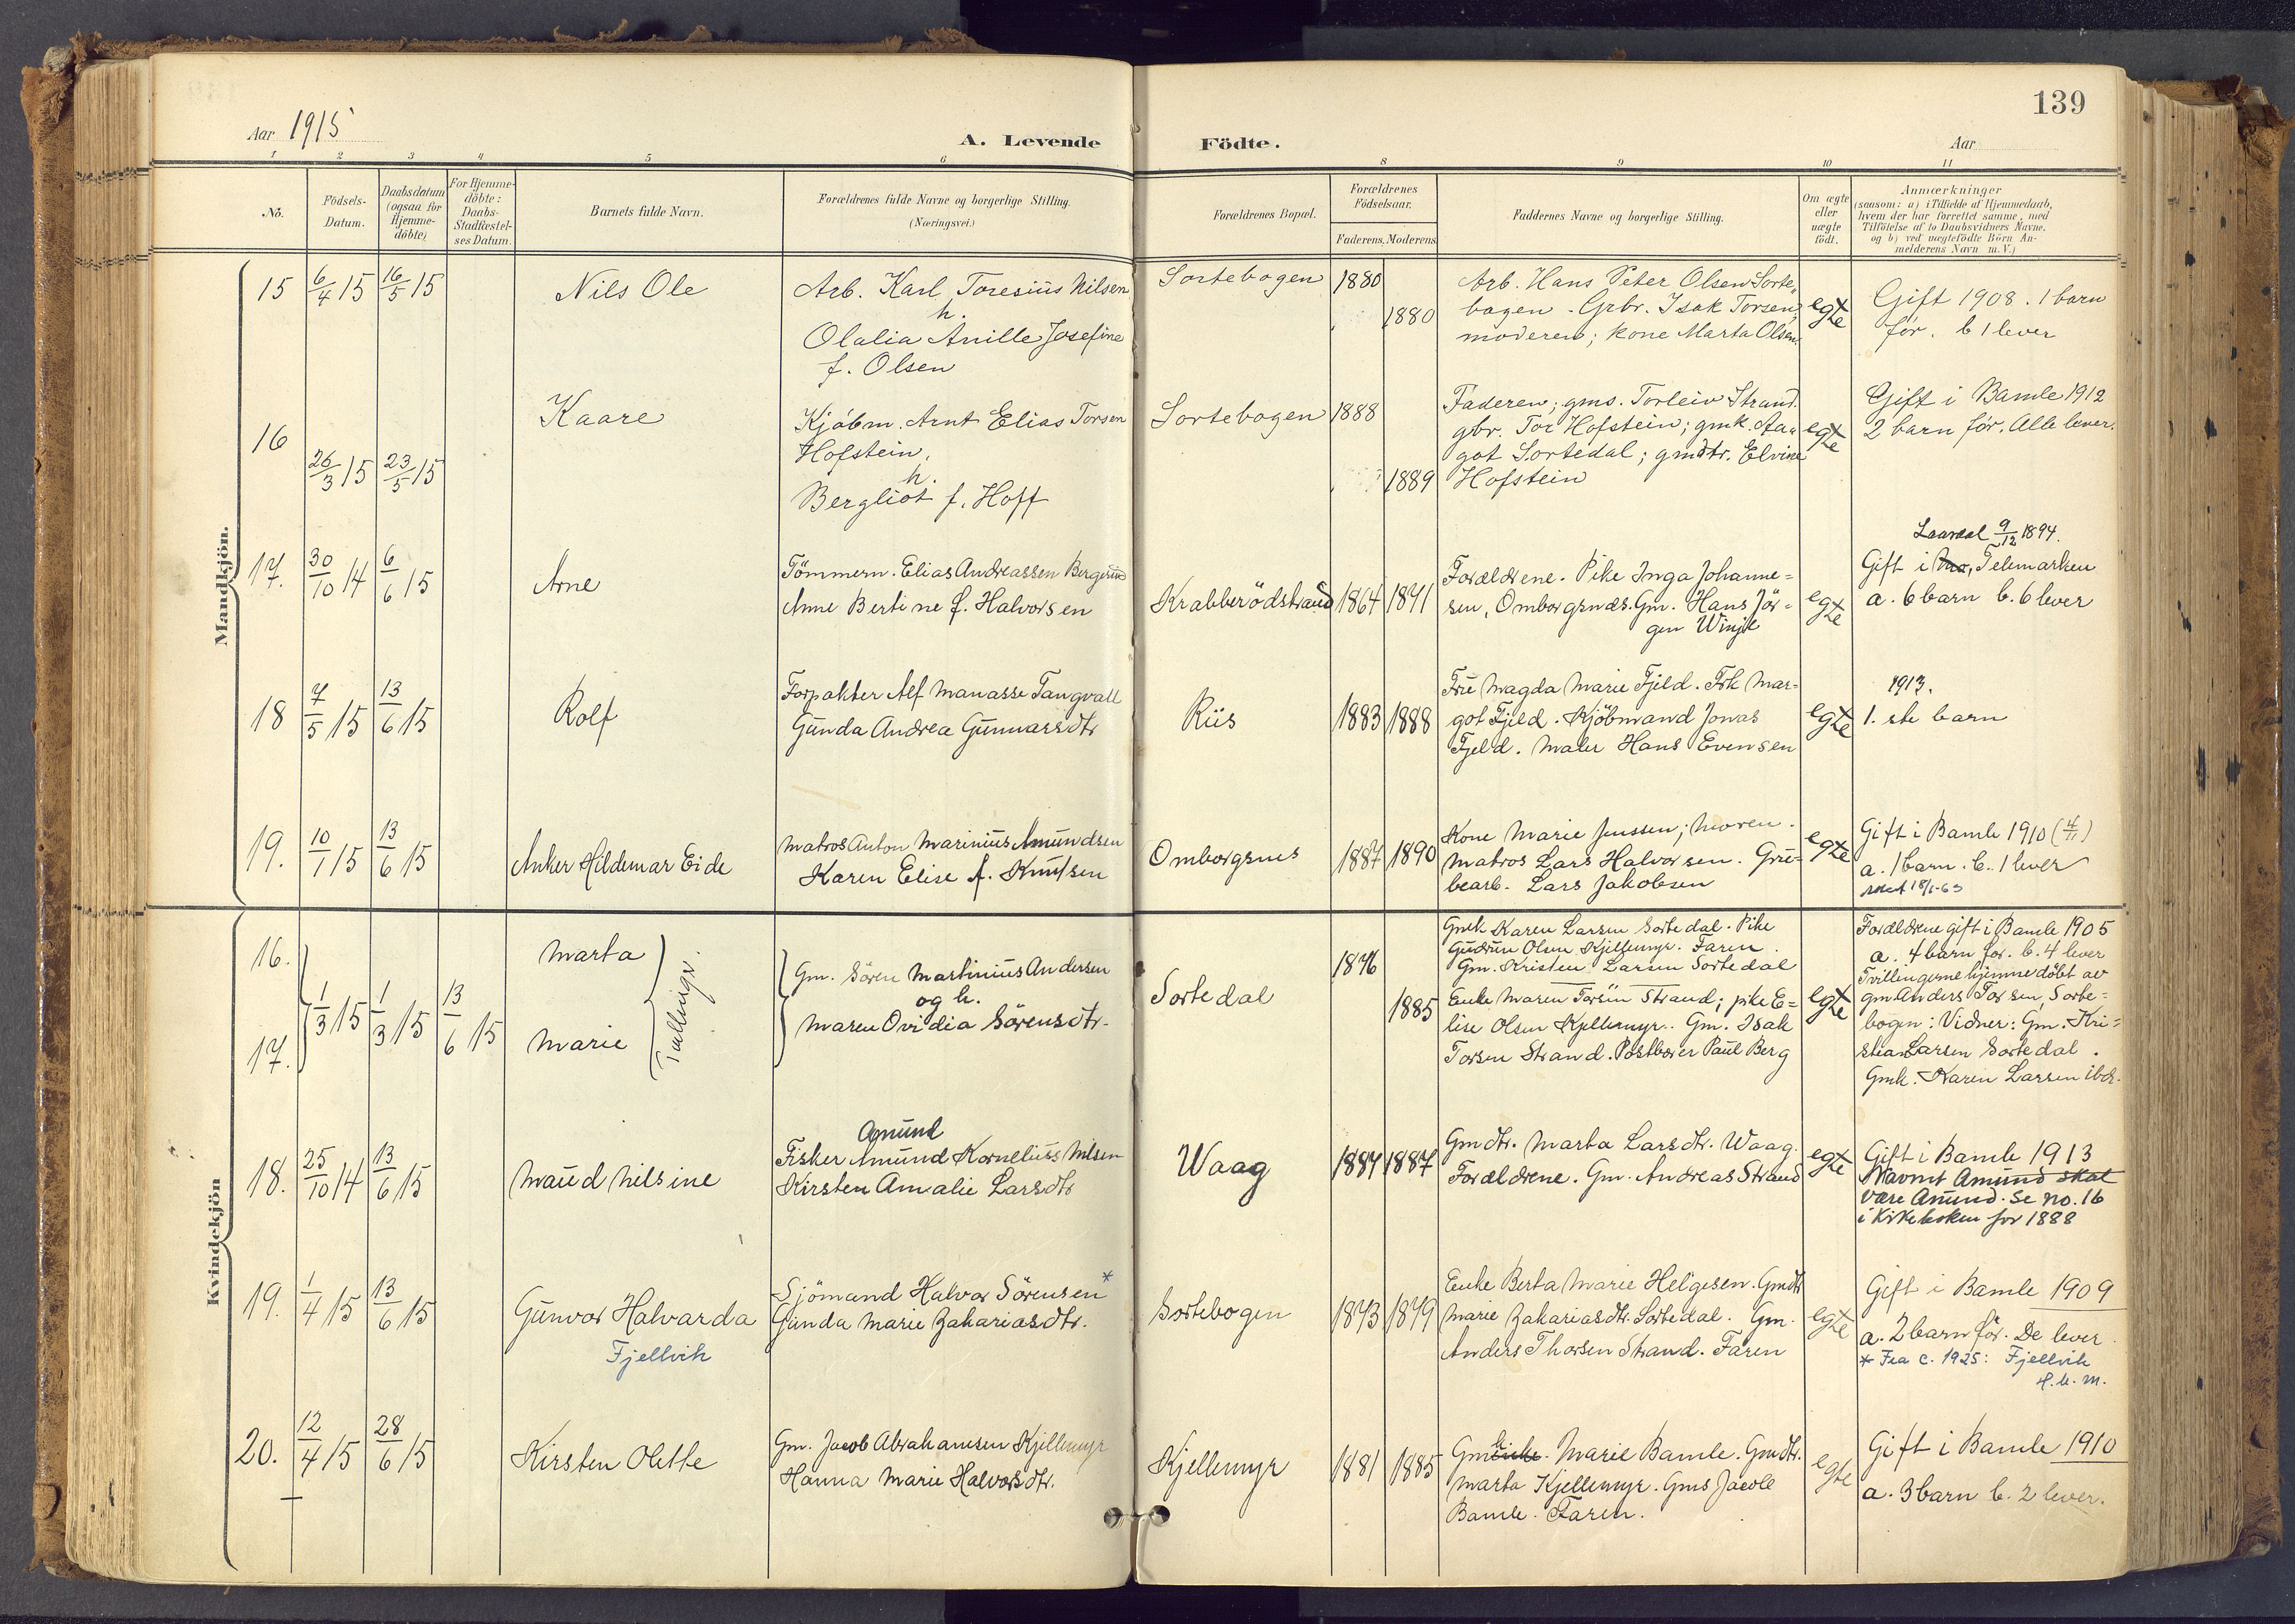 139
Aar 1915
A. Levende
Födte.
Aar
1 2 3 4 5 6 8 9 10 11
No.
Födsels-
Datum.
Daabsdatum
(ogsaa for
Hjemme-
döbte)
For Hjemme-
döbte:
Daabs-
Stadfæstel-
ses Datum.
Barnets fulde Navn.
Forældrenes fulde Navne og borgerlige Stilling.
(Næringsvei.)
Forældrenes Bopæl.
Forældrenes
Födselsaar.
Faderens. Moderens
Faddernes Navne og borgerlige Stilling.
Om ægte
eller
uægte
födt.
Anmærkninger
(saasom: a) i Tilfælde af Hjemmedaab,
hvem der har forrettet samme, med
Tilföielse af to Daabsvidners Navne.
og b) ved uægtefödte Börn An-
melderens Navn m. V.)
Mandkjön.
15 6/4 15 16/5 15
Nils Ole
Arb. Karl Toresius Nilsen
h.
Olalia Anille Josefine
f. Olsen
Sortebogen 1880
1880
Arb. Hans Peter Olsen Sorte„
bogen. Grbr. Isak Torsen,
moderen; kone Marta Olsen.
egte
Gift 1908. 1 barn
før. b 1 lever
16 26/3 15 23/5 15
Kaare
Kjøbm. Arnt Elias Torsen
Hofstein,
h.
Bergliot f. Hoff
Sortebogen 1888
1889
Faderen; gms. Torleiv Strand.
gbr. Tor Hofstein; gmk. Aa„
got Sortedal; gmdtr. Elvine
Hofstein
egte
Gift i Bamle 1912
2 barn før. Alle lever.
17. 30/10 14 6/6 15
Arne
Tömmerm. Elias Andreassen Bergsund
Anne Bertine f. Halvorsen
Krabberödstrand 1864 1871
Forældrene. Pike Inga Johanne=
sen, Omborgsnes. Gm. Hans Jör=
gen Winje
egte
Laardal 9/12 1894.
Gift i Telemarken
a. 6 barn b. 6 lever
18 7/5 15 13/6 15
Rolf
Forpakter Alf Manasse Tangvall
Gunda Andrea Gunnarsdtr
Riis
1883 1888
Fru Magda Marie Fjeld. Frk Mar=
got Fjeld. Kjöbmand Jonas
Fjeld. Maler Hans Evensen
egte
1913.
1. ste barn
19. 10/1 15 13/6 15
Anker Hildemar Eide
Matros Anton Marinius Amundsen
Karen Elise f. Knutsen
Omborgsnes
1887 1890
Kone Marie Jenssen; moren.
Matros Lars Halvorsen. Gru=
bearb. Lars Jakobsen
egte
Gift i Bamle 1910 (4/11)
a. 1 barn. b. 1 lever
18/1-63
Kvindekjön
16.
17.
1/3 15 1/3 15 13/6 15
Marta
Marie
Tvillinger.
Gm. Sören Martinius Andersen
og h.
Maren Ovidia Sörensdtr.
Sortedal
1876
1885
Gmk Karen Larsen Sortedal. Pike
Gudrun Olsen Kjellemyr. Faren.
Gm. Kristen Larsen Sortedal
Enke Maren Torsen Strand; pike E=
lise Olsen Kjellemyr. Gm. Isak
Torsen Strand. Postbærer Paul Berg
egte
Forældrene gift i Bamle 1905
a. 4 barn før. b. 4 lever
Tvillingerne hjemmedöbt av
gm Anders Torsen, Sorte=
bogen: Vidner: Gm. Kri=
stian Larsen Sortedal.
Gmk. Karen Larsen ibd.
18. 25/10 14 13/6 15
Maud Nilsine
Anund
Fisker Amund Kornelius Nilsen
Kirsten Amalie Larsdtr
Waag
1887 1887
Gmdtr. Marta Larsdtr. Waag.
Forældrene. Gm. Andreas Strand
egte
Gift i Bamle 1913
Navnet Amund skal
være Anund. Se no. 16
i Kirkeboken for 1888
19. 1/4 15 13/6 15
Gunvor Halvarda
Fjellvik
Sjömand Halvor Sörensen *
Gunda Marie Zakariasdtr.
Sortebogen
1873 1879
Enke Berta Marie Helgesen. Gmdtr
Marie Zakariasdtr. Sortedal. Gm.
Anders Thorsen Strand. Faren
egte
Gift i Bamle 1909
a. 2 barn før. De lever.
* Fra c. 1925: Fjellvik
H. k. M.
20. 12/4 15 28/6 15
Kirsten Olette
Gm. Jacob Abrahamsen Kjellemyr
Hanna Marie Halvorsdtr.
Kjellemyr
1881 1885
Gmk Enke. Marie Bamle. Gmdtr.
Marta Kjellemyr. Gms Jacob
Bamle. Faren.
egte
Gift i Bamle 1910
a. 3 barn b. 2 lever.